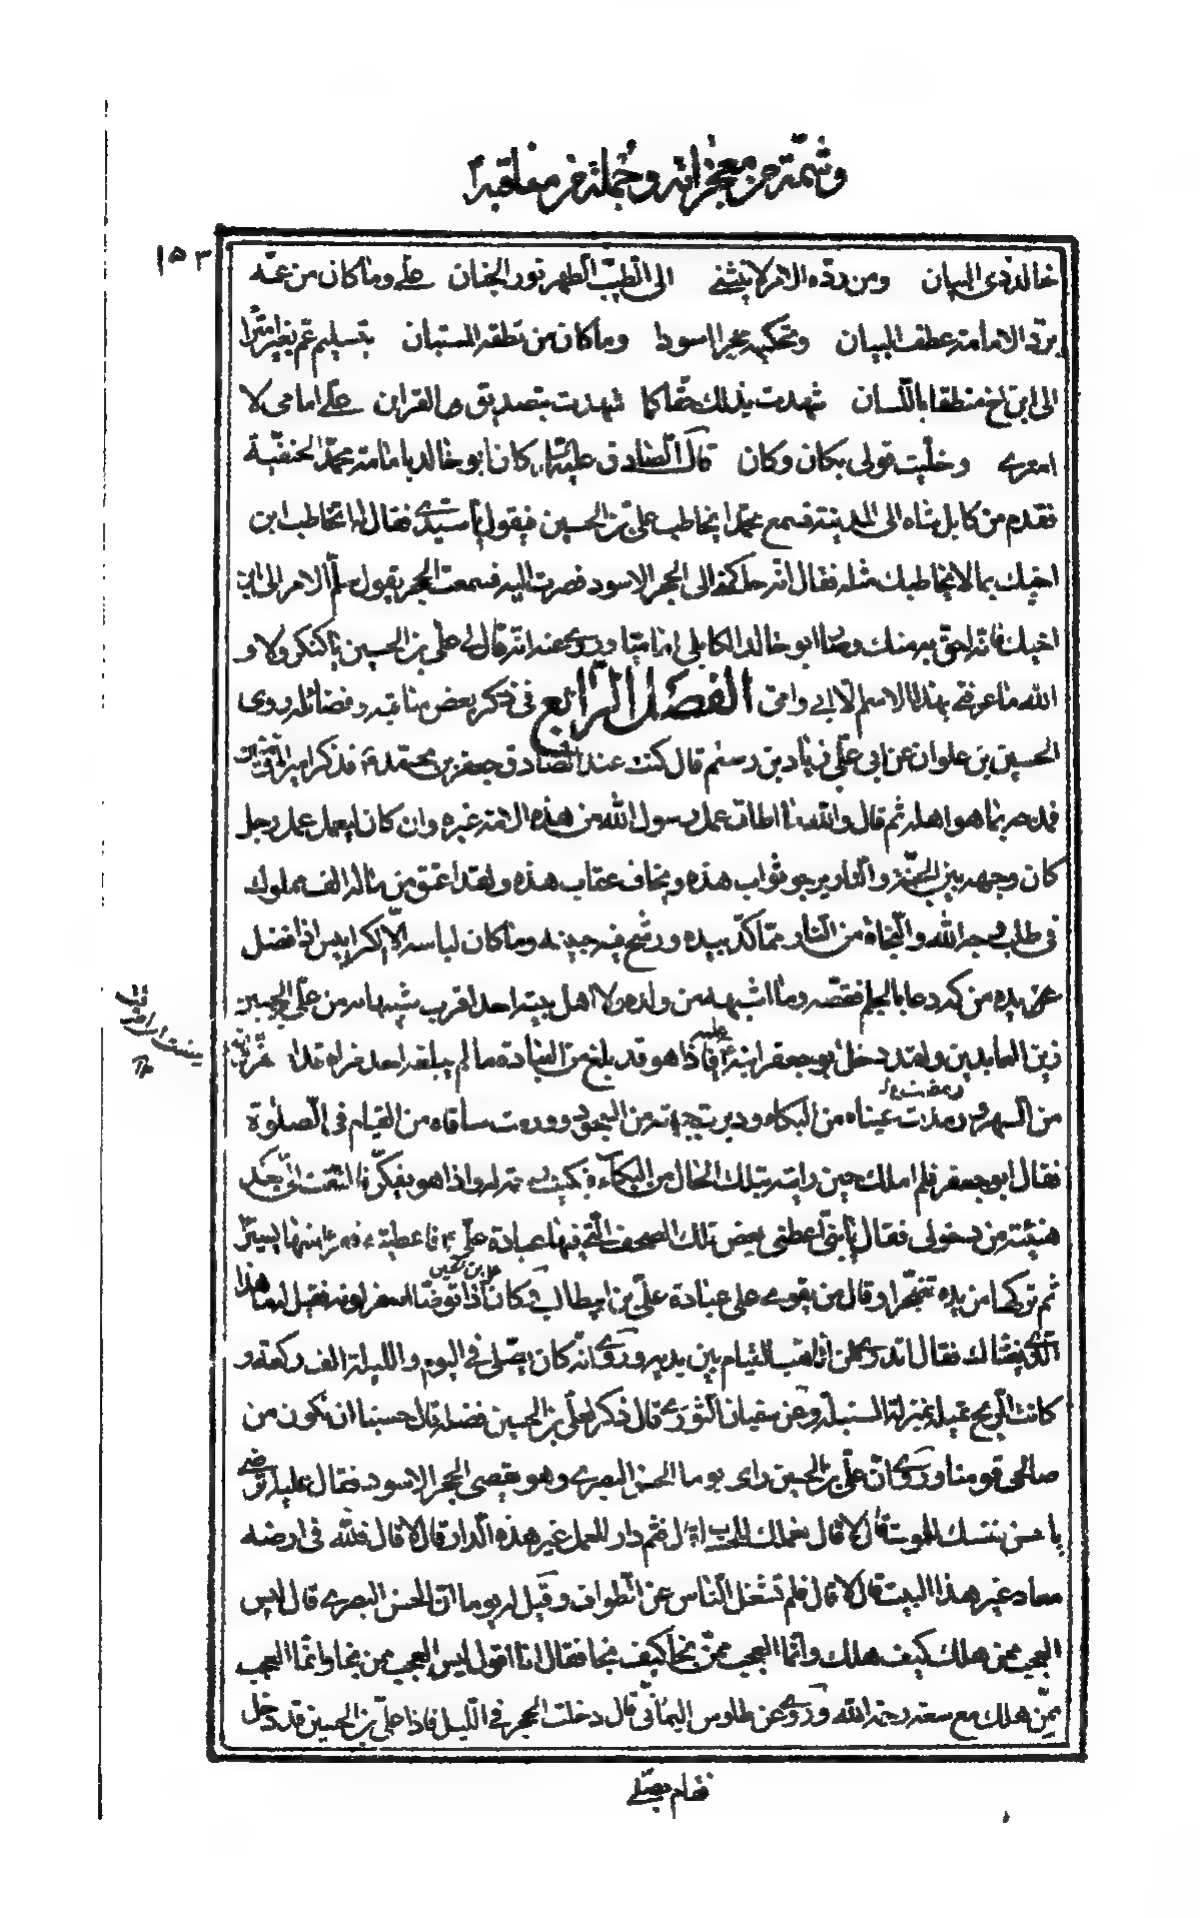 وشمّة من معجزاته وجملة من مناقبه
١٥٣
خالد ذى البيان ومن ردّه الامر لا ينثني الى الطيّب الطهر نور الجنان علي وما كان من عمّه
بردّ الامامة عطف البيان وتحكيمه حجرا اسودا وما كان من نطقه المستبان بتسليم عم بغير امترا
الى ابن اخ منطقا باللّسان شهدت بذلك حقّا كما شهدت بتصديق اى القران علي امامى لا
امتري وخلّيت قولى بكان وكان قال الصّادق عليه السّلام كان ابو خالد بامامة محمّد الحنفيّة
فقدم من كابل شاه الى المدينة فسمع محمّدا يخاطب علىّ بن الحسين فيقول يا سيّدي فقال له اتخاطب ابن
اخيك بما لا يخاطبك مثله فقال انّه حاكمني الى الحجر الاسود فصرت اليه فسمعت الحجر يقول سلّم الامر الى ابن
اخيك فانّه احقّ به منك وصار ابو خالد الكابلى اماميّا وروي عنه انّه قال لى علىّ بن الحسين يا كنكر ولا و
الله ما عرفني بهذا الاسم الّا ابي وامّى الفصل الرّابع فى ذكر بعض مناقبه وفضائله روى
الحسين بن علوان عن ابى علىّ زياد بن رستم قال كنت عند الصّادق جعفر بن محمّد فذكر امير المؤمنين
فمدحه بما هو اهله ثم قال والله ما اطاق عمل رسول الله من هذه الامّة غيره وان كان ليعمل عمل رجل
كان وجهه بين الجنّة والنّار يرجو ثواب هذه ويخاف عقاب هذه ولقد اعتق من ماله الف مملوك
فى طلب وجه الله والنّجاة من النّار ممّا كدّ بيده ورشح فيه جبينه وما كان لباسه الّا الكرابيس اذا فضل
عن يده من كمه دعا بالجلم فقصّه وما اشبهه من ولده ولا اهل بيته احد اقرب شبها به من علىّ بن الحسين
زين العابدين ولقد دخل ابو جعفر ابنه عليه فاذا هو قد بلغ من العبادة ما لم يبلغه احد فراه قد اصفرّ لونه
من السهر ورمدت عيناه من البكاء ودبرت جبهته من السجود وورمت ساقاه من القيام فى الصّلوة
فقال ابو جعفر فلم املك حين رايته بتلك الحال من البكاء فبكيت رحمة له واذا هو يفكّر فالتفت الىّ بعد
هنيئة من دخولى فقال يا بنىّ اعطنى بعض تلك الصحف الّتى فيها عبادة علىّ فاعطيته فقرا منها يسيرا
ثم تركها من يده تضجّرا وقال من يقوي على عبادة علىّ بن ابيطالب وكان علي بن الحسين اذا توضّا اصفر لونه فقيل له ما هذا
الّذى يغشاك فقال اتدرون لمن اتاهّب للقيام بين يديه وروي انّه كان يصلّى فى اليوم والليلة الف ركعة و
كانت الرّيح تميله بمنزلة السنبلة وعن سفيان الثوري قال ذكر لعلىّ بن الحسين فضله قال حسبنا ان نكون من
صالحى قومنا وروي انّ علىّ بن الحسين راى يوما الحسن البصري وهو يقص عند الحجر الاسود فقال عليه السلام اترضى
يا حسن نفسك للموت قال لا قال فعملك للحساب قال لا قال فثمّ دار للعمل غير هذه الدار قال لا قال فللّه فى ارضه
معاد غير هذا البيت قال لا قال فلم تشغل النّاس عن الطواف وقيل له يوما انّ الحسن البصري قال ليس
العجب ممن هلك كيف هلك وانّما العجب ممّن نجا كيف نجا فقال انا اقول ليس العجب ممن نجا وانّما العجب
ممّن هلك مع سعة رحمة الله وروي عن طاوس اليمانىّ قال دخلت الحجر فى اللّيل فاذا علىّ بن الحسين قد دخل
فقام يصلّي